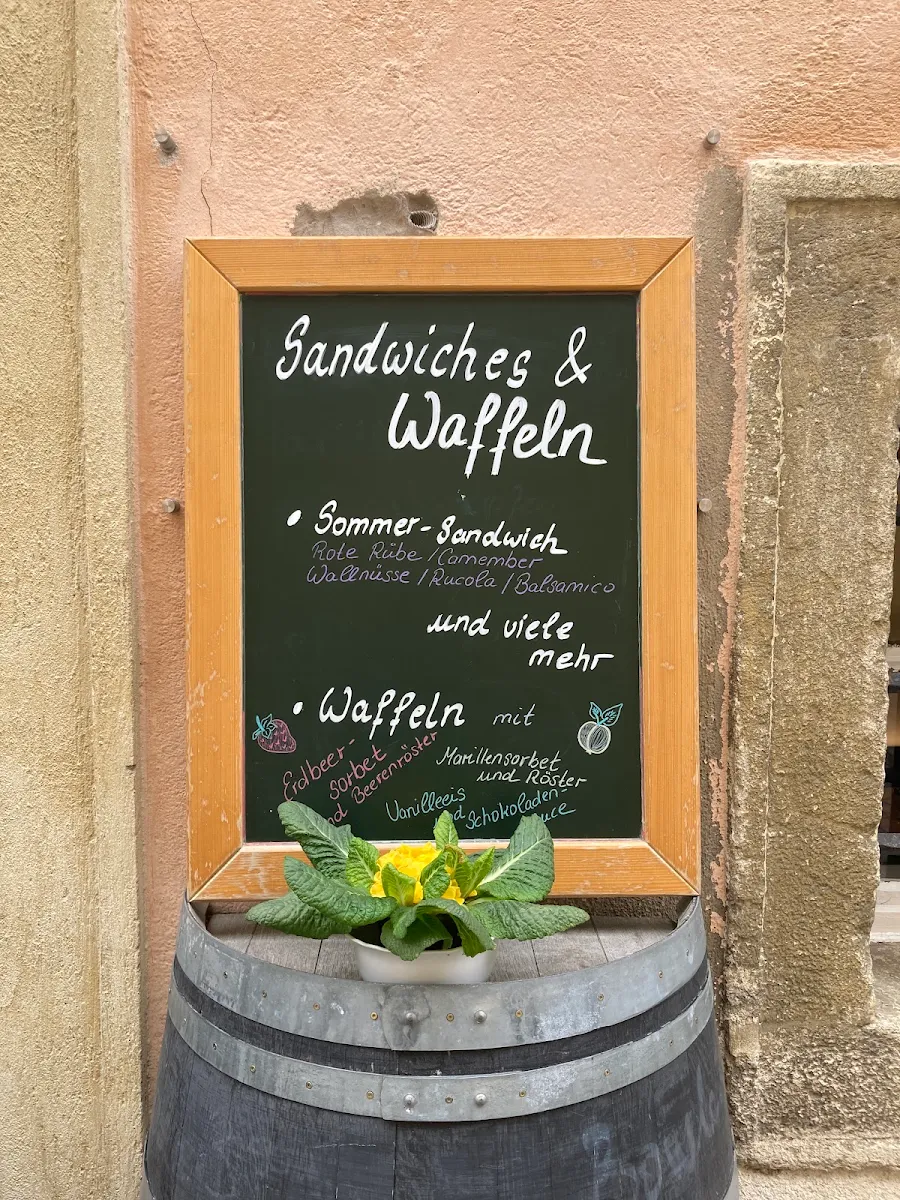 Sandwiches &
Waffeln
• Sommer-Sandwich
Rote Rübe / Camember
Wallnüsse / Rucola / Balsamico
und viele
mehr
• Waffeln mit
Erdbeer-
sorbet
Beerenröster
Marillensorbet
und Röster
Vanilleeis
Schokoladen-